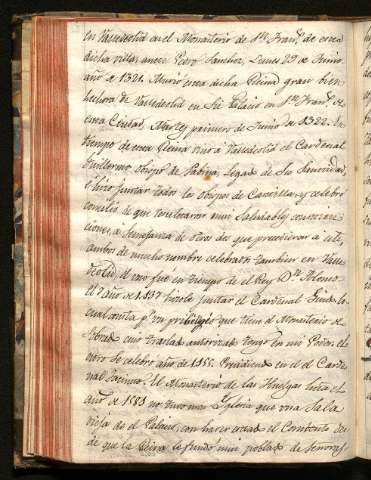 en Valladolid en el Monasterio de Sn. Franco. de essa
dicha villa, ante Pero Sanchez, Lunes 29 de Junio
año de 1321. Murió esta dicha Reina gran bien
hechora de Valladolid en su Palacio en Sn. Franco. de
esta Ciudad, Martes primero de Junio de 1322. En
tiempo de esta Reina vino a Valladolid el Cardenal
Guillermo Obispo de Sabina, legado de Su Santidad,
é hizo juntar todos los Obispos de Castilla, y celebró
concilio de que resultaron mui saludables constitu
ciones, a semejanza de otros dos que precedieron a este,
ambos de mucho nombre celebrados tambien en Valla
dolid, el uno fue en tiempo del Rey Dn. Alonso
el 7 año de 1137 hizole juntar el Cardenal Guido lo
cual consta pr. un privilegio que tiene el Monasterio de
cuio traslado autorizado tengo en mi Poder. el
otro se celebró año de 1155. Presidiendo en el el Carde
nal Jacinto. El Monasterio de las Huelgas hasta el
año de 1583 no tuvo mas Yglesia que una Sala
vieja de el Palacio, con haver estado el Convento des
de que la Reina le fundó mui poblado de Señoras